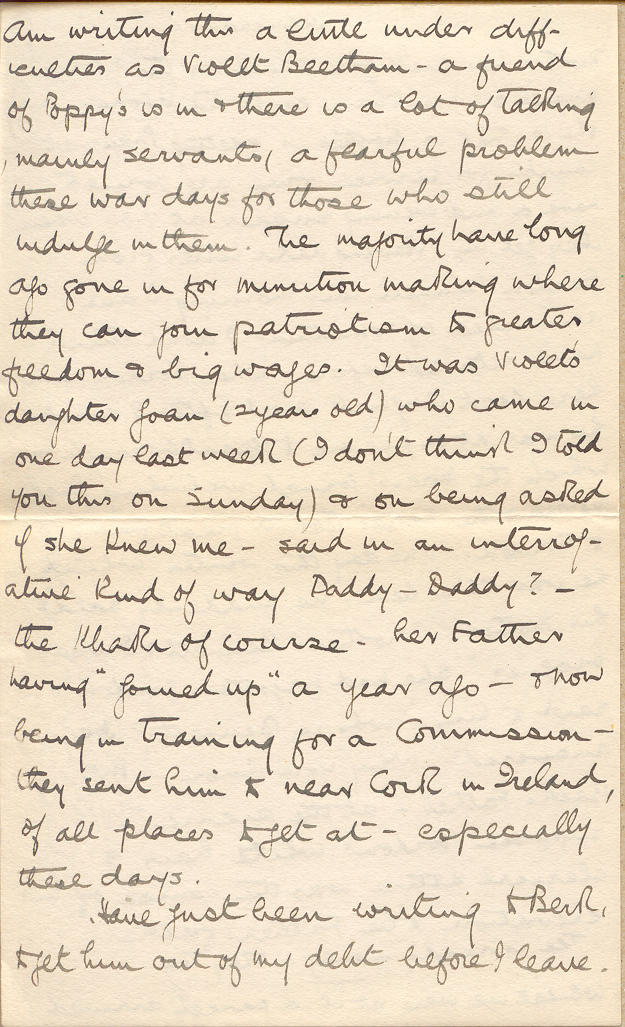 Am writing this a little under diff-
iculties as Violet Beetham - a friend
of Poppy's is in & there is a lot of talking
, mainly servants, a fearful problem
these war days for those who still
indulge in them. The majority have long
ago gone in for munition making where
they can join patriotism to greater
freedom & big wages. It was Violet's
daughter Joan (2 years old) who came in
one day last week (I don't think I told
you this on Sunday) & on being asked
if she knew me - said in an interrog-
ative kind of way Daddy - Daddy? -
the Khaki of course - her Father
having "joined up" a year ago - & now
being in training for a Commission -
they sent him to near Cork in Ireland,
of all places to get at - especially
these days.
Have just been writing to Bert,
to get him out of my debt before I leave.